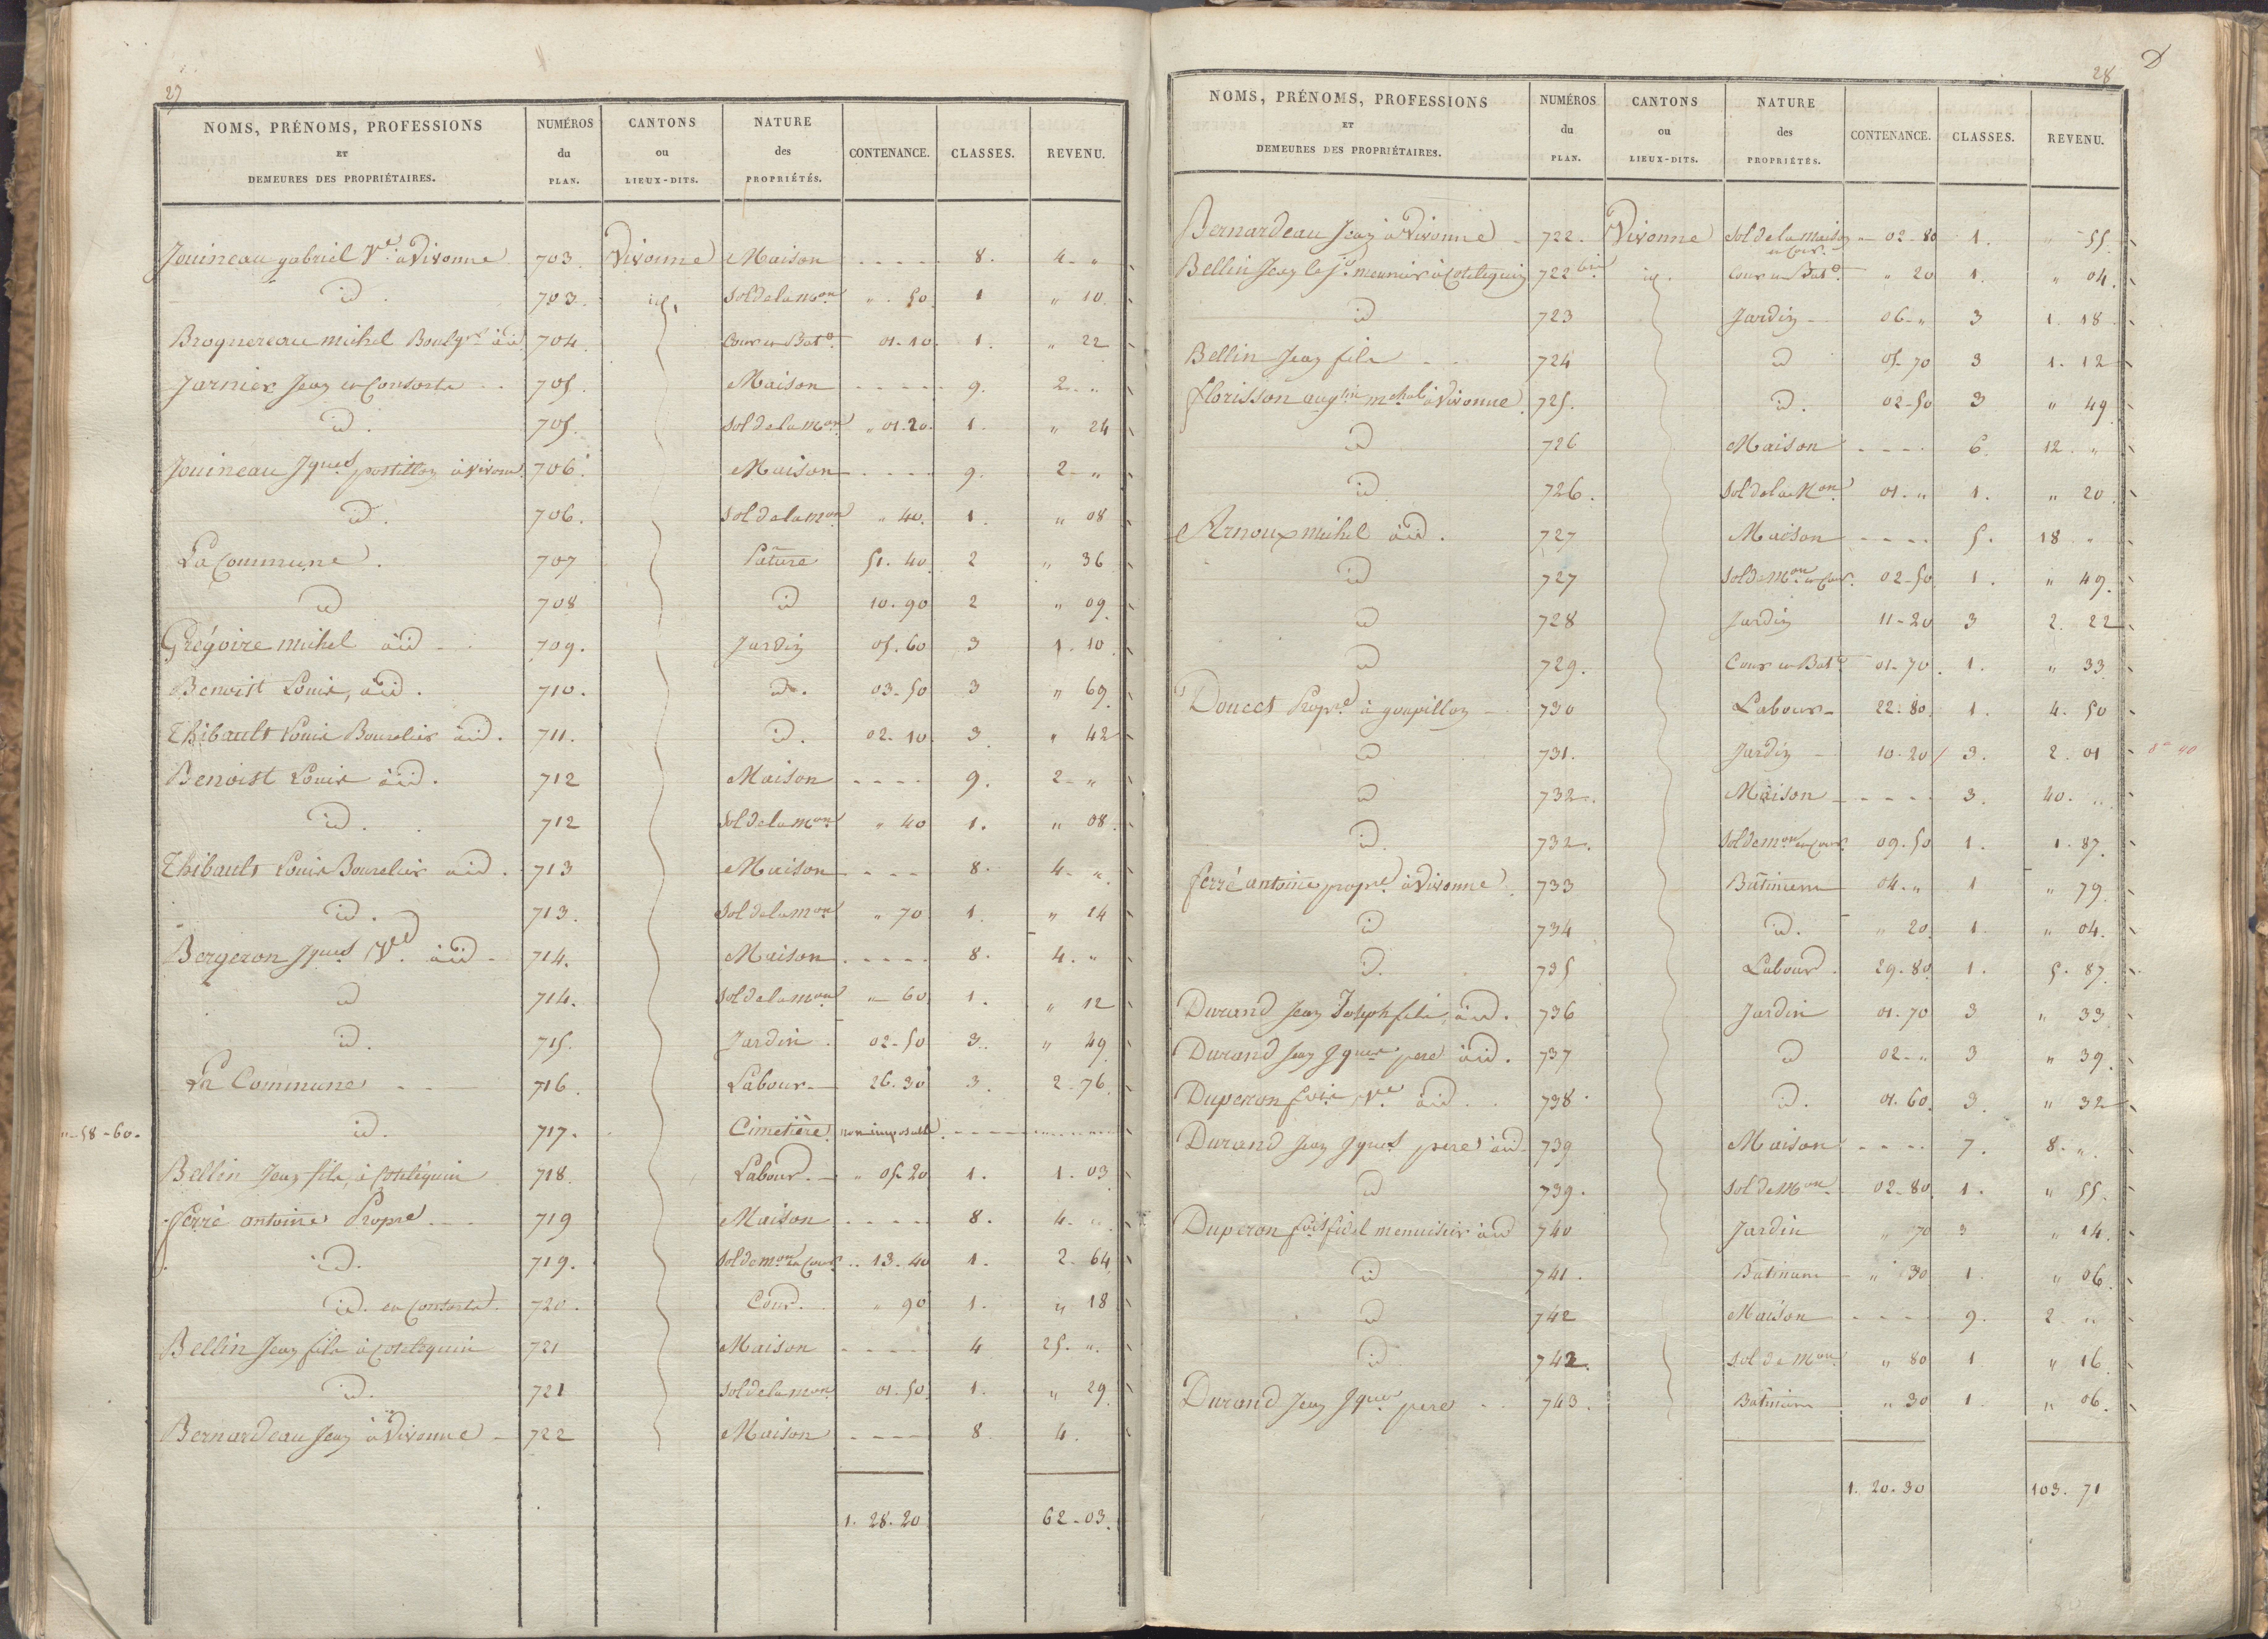 27
NOMS, PRÉNOMS, PROFESSIONS ET DEMEURES DES PROPRIÉTAIRES. NUMÉROS du PLAN. CANTONS ou LIEUX-DITS. NATURE des PROPRIÉTÉS. CONTENANCE. CLASSES. REVENU.
Jouineau gabriel Ve à Vivonne 703 Vivonne Maison - - - - 8. 4 - "
id 703. id. Sol de la mon " 50. 1 " 10.
Broquereau michel Boulgr à id 704. Cour et Bat. 01-10. 1. " 22
Jarnier Jean et Consorts - - 705. Maison - - - - 9. 2 - "
id. 705. Sol de la mon " 01.20. 1. " 24
Jouineau Jques postillon à Vivone. 706. Maison - - - - 9. 2 - "
id. 706. Sol de la mon " 40. 1. " 08
La Commune. 707 Pature 51.40. 2 " 36
id 708 id 10.90 2 " 09.
Grégoire michel à id - - 709. Jardin 05.60 3 1.10.
Benoist Louis, à id. 710. id. 03-50 3 " 69
Thibault Louis Bourelier à id. 711. id. 02.10 3 " 42
Benoist Louis à id. 712 Maison - - - - 9. 2 - "
id. 712 Sol de la mon " 40 1. " 08.
Thibault Louis Bourelier à id. 713 Maison - - - - 8. 4 - "
id. 713. Sol de la mon " 70 1. " 14
Bergeron Jques Ve à id - 714. Maison - - - - 8. 4. "
id 714. Sol de la mon " 60 1. " 12
id. 715. Jardin. 02-50 3. " 49
La Commune - - 716. Labour 26.30 3. 2-76.
"-58-60. id. 717. Cimetière non imposable. - - - -
Bellin Jean fils, à Cotéléquin 718. Labour. " 05.20 1. 1.03
ferré antoine Propre - - 719 Maison - - - - 8. 4. "
id. 719. Sol de mon et Cour " 13-40 1. 2.64
id. et Consorts. 720. Cour. " 90 1. " 18
Bellin Jean fils à Cotéléquin 721 Maison - - - - 4 25. ".
id. 721 Sol de la mon 01.50 1. " 29
Bernardeau Jean à Vivonne - 722 Maison - - - - 8 4.
1.28.20 62-03.
D
28
NOMS, PRÉNOMS, PROFESSIONS ET DEMEURES DES PROPRIÉTAIRES. NUMÉROS du PLAN. CANTONS ou LIEUX-DITS. NATURE des PROPRIÉTÉS. CONTENANCE. CLASSES. REVENU.
Bernardeau Jean à Vivonne - 722. Vivonne Sol de la Maison et Cour. " 02-80 1. " 55.
Bellin Jean le Je meunier à Cotéléquin 722 bis id. Cour et Bat. " 20 1. " 04.
id 723 Jardin - 06-" 3 1.18
Bellin Jean fils - - 724 id 05-70 3 1.12
florisson augtin mchal à Vivonne. 725. id. 02-50 3 " 49
id 726 Maison - - - - 6. 12. "
id 726. Sol de la Mon 01. " 1. " 20.
Arnoux michel à id. 727 Maison - - - - 5. 18. "
id 727 Sol de Mon et Cour. 02-50 1. " 49.
id 728 Jardin 11-20 3 2.22
id 729. Cour et Bat. 01-70. 1. " 33
Doucet Propre à goupillon - 730 Labour - 22.80. 1. 4.50
id 731. Jardin - 10.20 3. 2.01
id 732. Maison - - - - 3. 40. "
id. 732. Sol de mon et Cour. 09.50 1. 1.87.
ferré antoine propre à Vivonne. 733 Bâtiment 04. " 1 " 79.
id 734 id. " 20. 1. " 04.
id. 735 Labour. 29.80 1. 5.87
Durand Jean Joseph fils, à id. 736 Jardin 01.70 3 " 33
Durand Jean Jques pere à id. 737 id 02-" 3 " 39.
Duperon fois Ve à id. 738. id. 01.60. 3. " 32
Durand Jean Jques pere à id - 739 Maison - - - - 7. 8. ".
id 739. Sol de Mon 02-80. 1. " 55.
Duperon fois fidel menuisier à id 740 Jardin " 70 3 " 14.
id 741. Batiment " 30 1. " 06.
id 742 Maison - - - - 9. 2. "
id 742. Sol de Mon " 80 1 " 16
Durand Jean Jques pere - - 743. Batiment " 30 1. " 06.
1.20.30 103.71